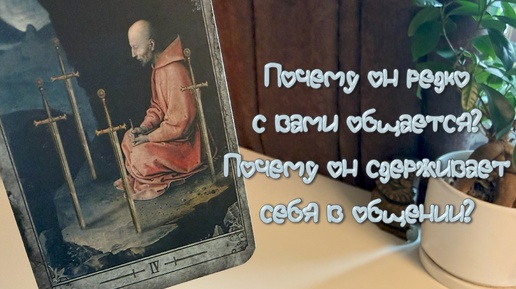 Почему он редко
с вами общается?
Почему он сдерживает
себя в общении?
IV